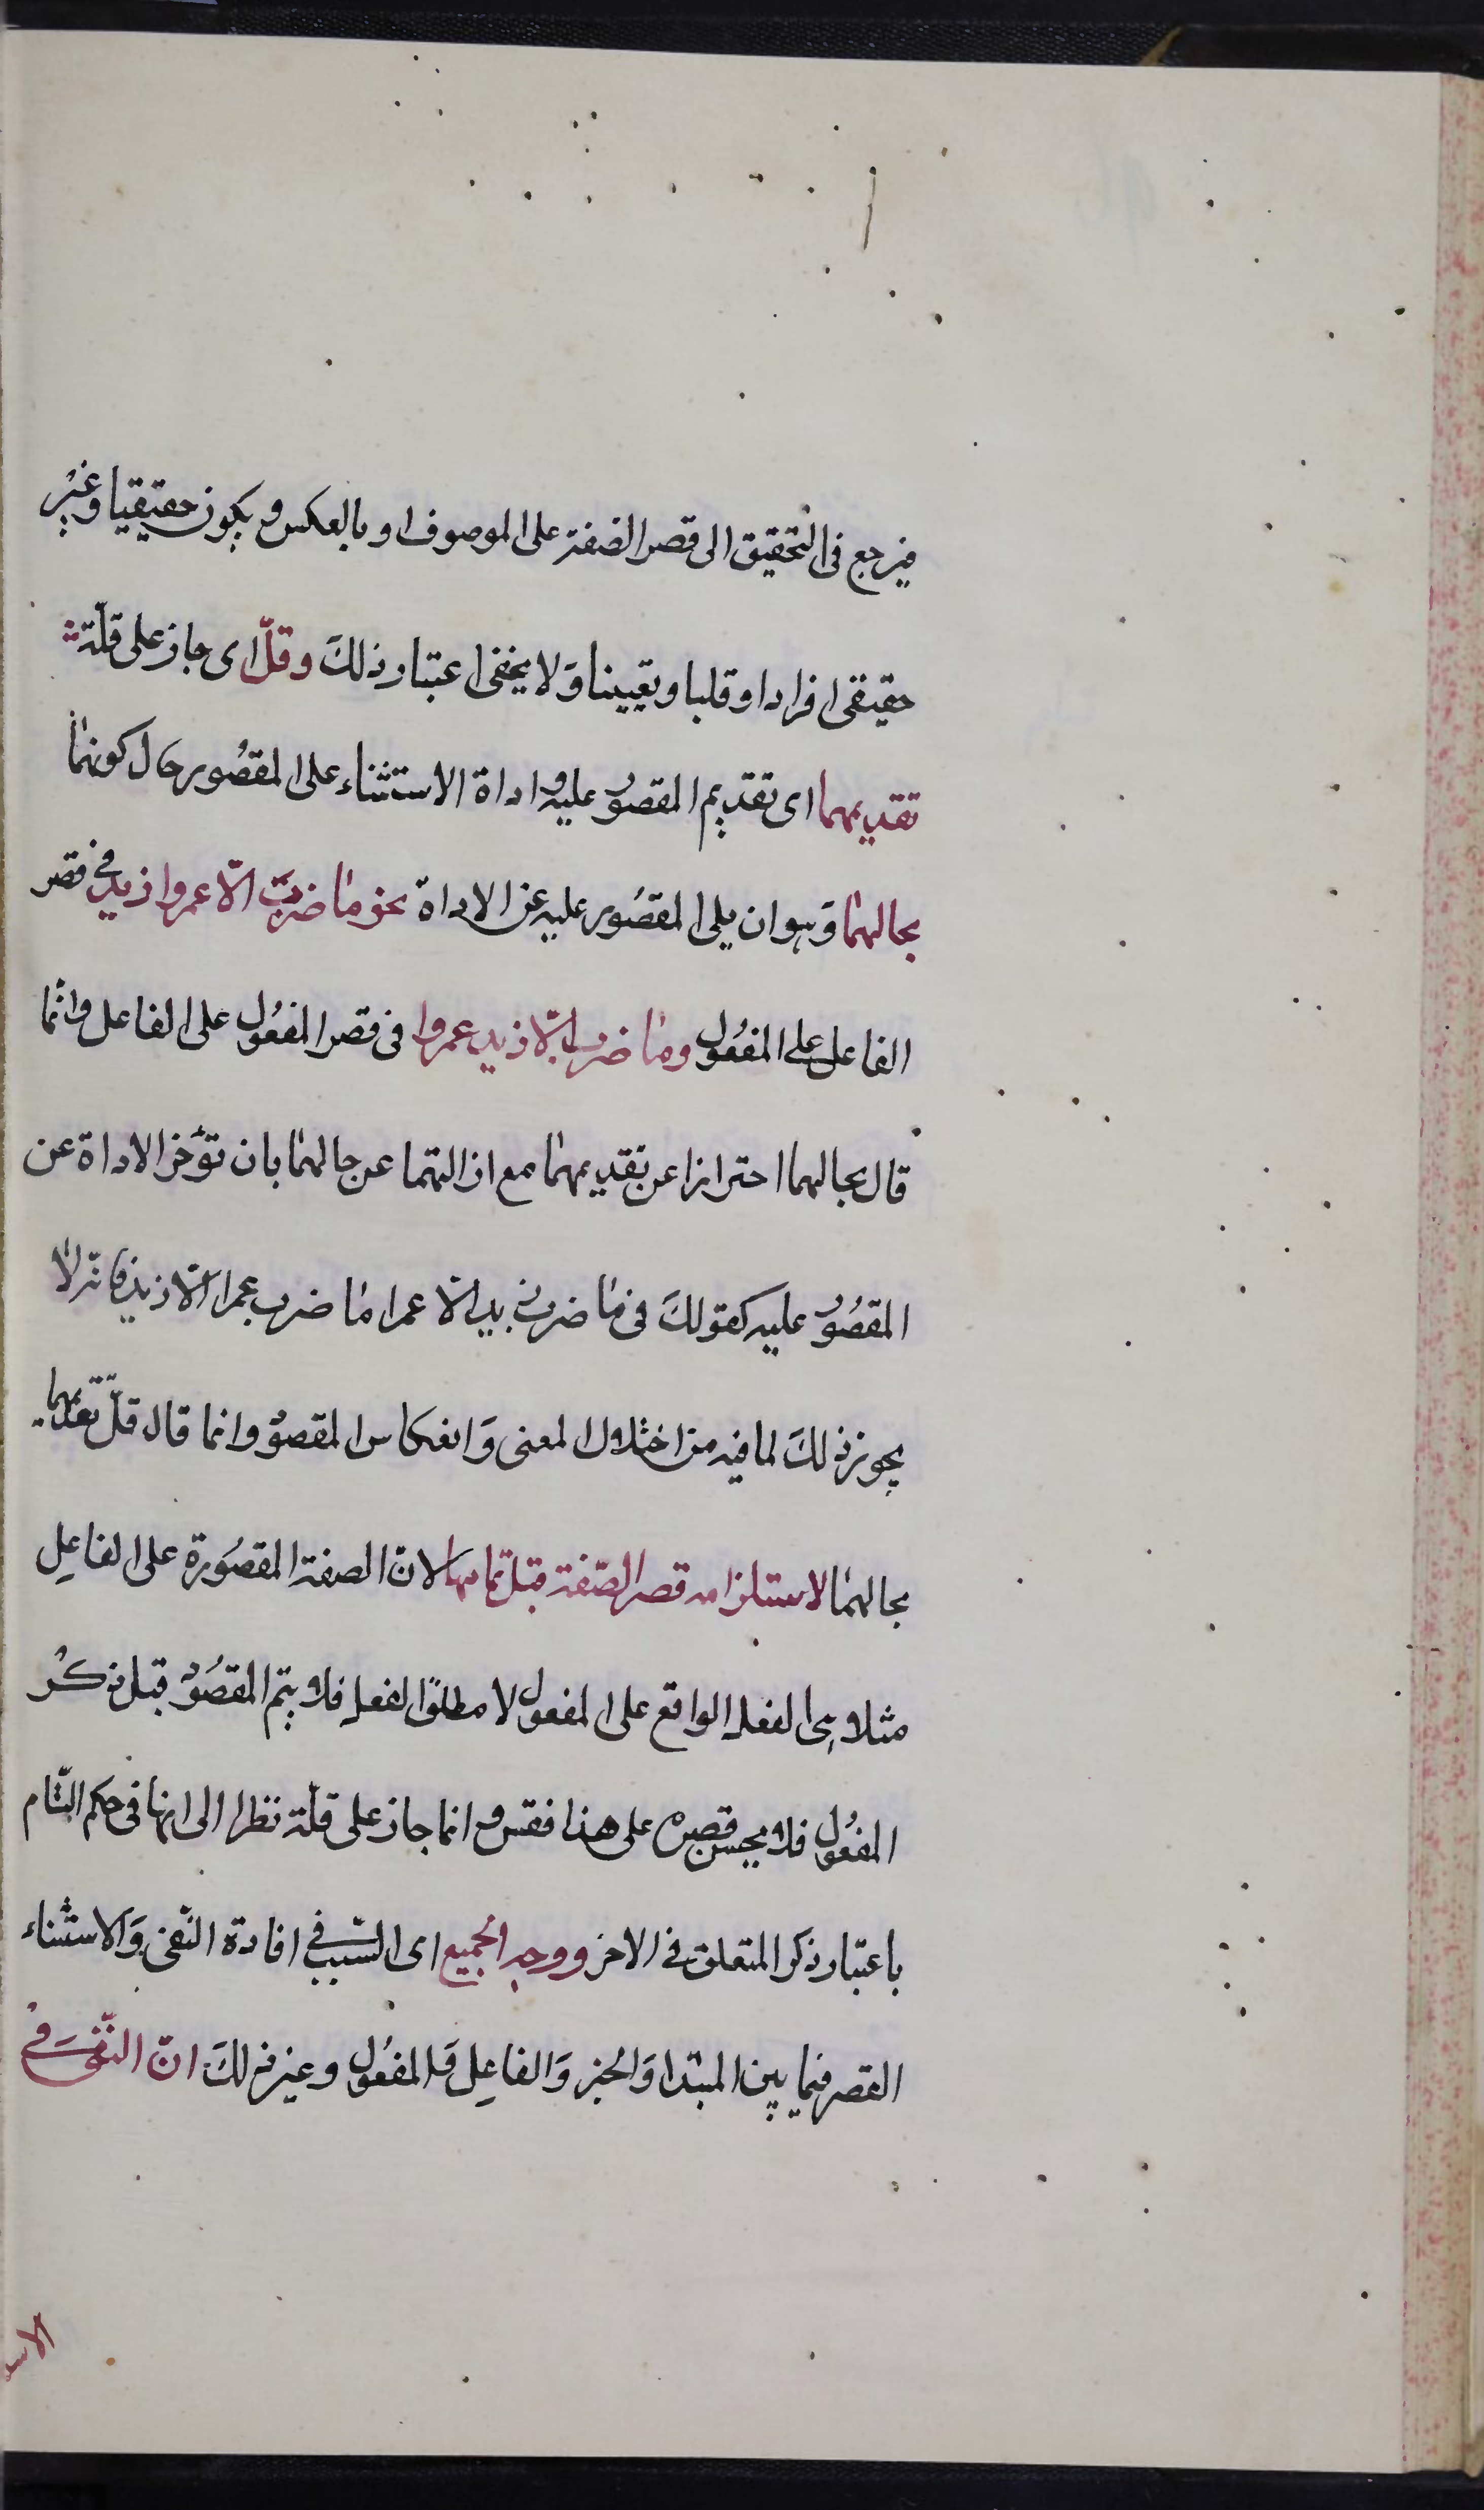 فيرجع فى التحقيق الى قصر الصفة على الموصوف او بالعكس ويكون حقيقيا وغير
حقيقى افرادا وقلبا وتعيينا وَلا يخفى اعتبار ذلكَ وقلّ اى جاز على قلّة
تقديمهما اى تقديم المقصور عليه واداة الاستثناء على المقصُور حَال كونهما
بحالهما وَهو ان يلى المقصُور عليه عن الاداة نحو مَا ضربَ الّا عمروا زيد فى قصر
الفاعل على المفعُول ومَا ضرب الّا زيد عمروا فى قصر المفعُول على الفاعل وانّما
قال بحالهما احترازا عن تقديمهما مع ازالتهما عن حالهمَا بان تؤخر الاداة عن
المقصُور عليه كقولكَ فى مَا ضرب زيد الّا عمرا مَا ضرب عمرا الّا زيد فانّه لا
يجوز ذلكَ لما فيه من اختلال المعنى وَانعكاس المقصوُد وانما قال قلّ تقديمهما
بحالهمَا لاستلزامه قصر الصّفة قبل تمامها لانّ الصفة المقصُورة على الفاعِل
مثلا هى الفعل الواقع على المفعول لا مطلق الفعل فلا يتم المقصُود قبل ذكْر
المفعُول فلا يحسن قصره على هذا فقس وانما جاز على قلّة نظرا الى انها فى حكم التّام
باعتبار ذكر المتعلق فى الاخر ووجه الجميع اى السّبب فى افادة النّفى وَالاستثناء
القصر فيما بين المبتدا وَالخبر وَالفاعِل وَالمفعُول وغير ذلكَ انّ النّفى فى
الاسـ